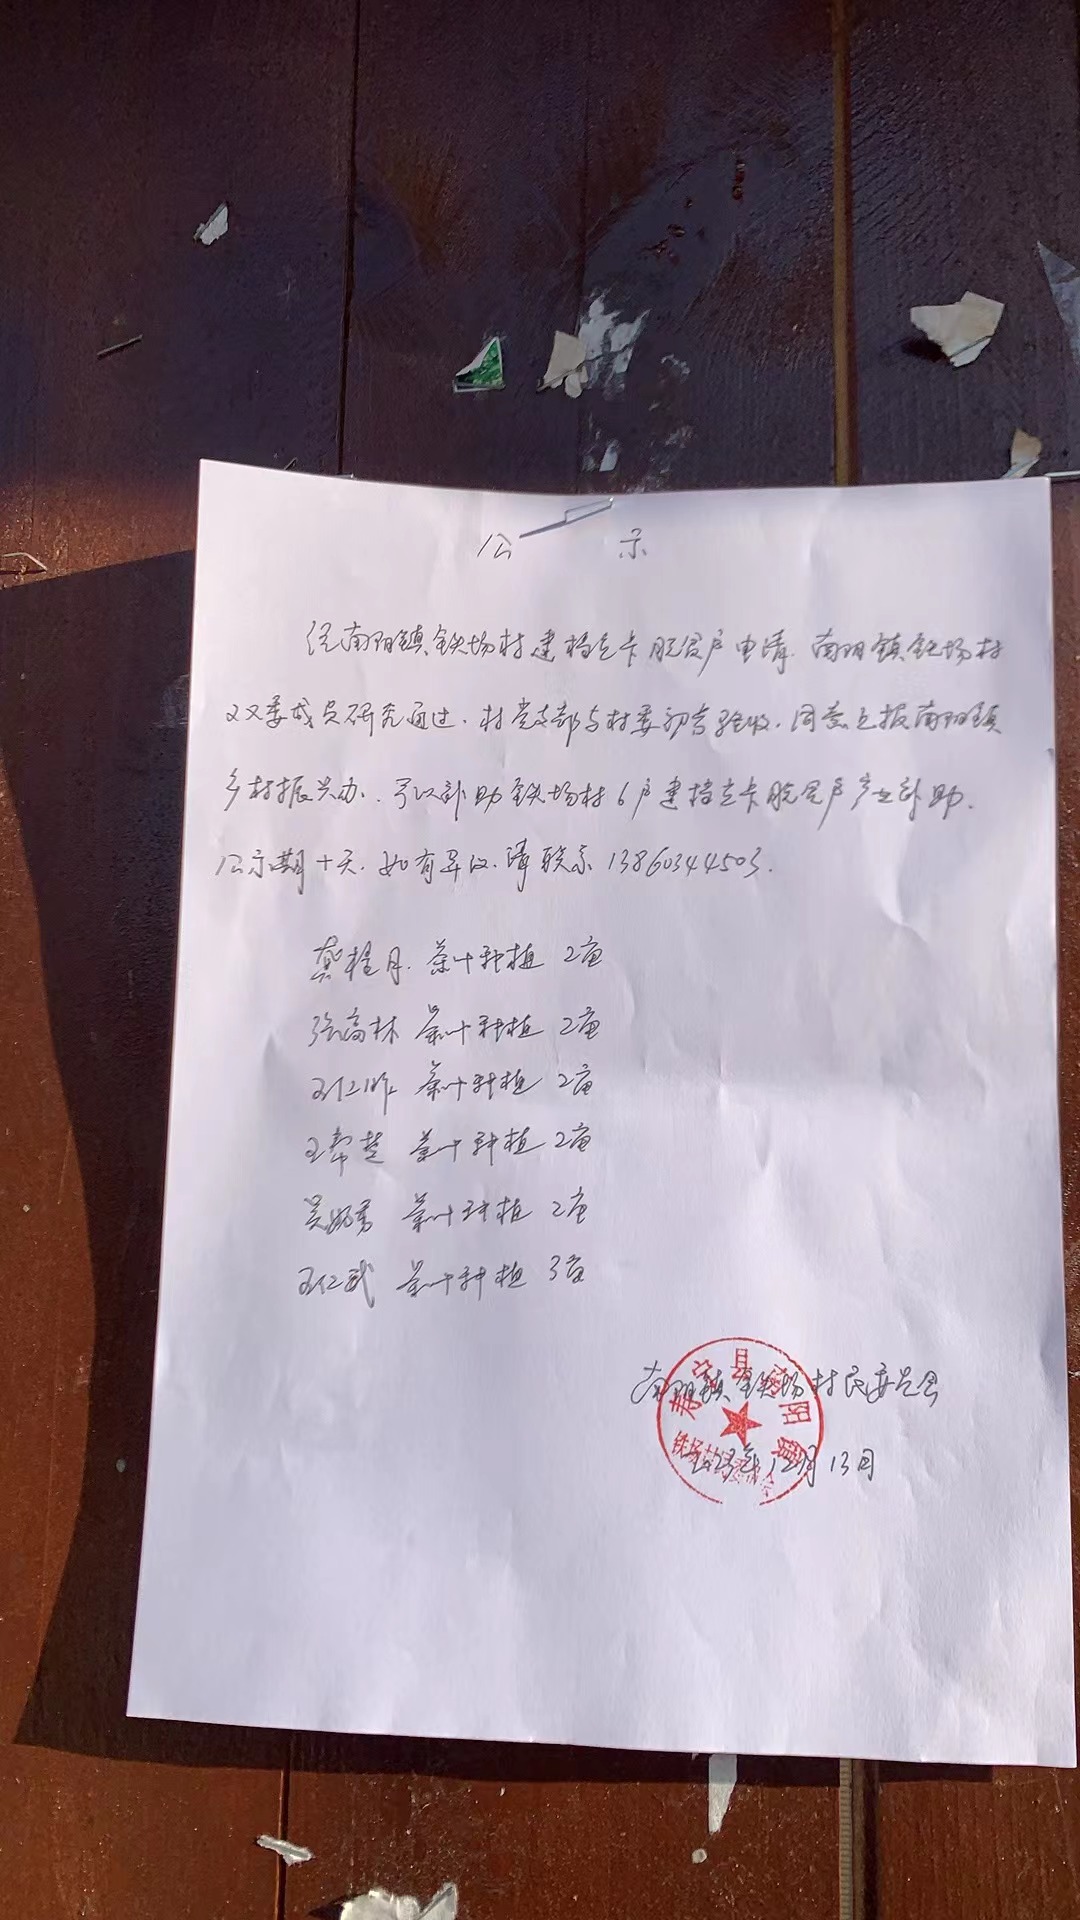 公 示
经南阳镇铁场村建档立卡脱贫户申请.南阳镇铁场村
双委成员研究通过.村党支部与村委初吉验收.同意上报南阳镇
乡村振兴办.予以补助铁场村6户建档立卡脱贫户产业补助.
公示期十天.如有异议.请联系13860344503.
龚 月.茶叶种植 2亩
张高林 茶叶种植 2亩
王仁昨 茶叶种植 2亩
王 楚 茶叶种植 2亩
吴 秀 茶叶种植 2亩
王仁武 茶叶种植 3亩
南阳镇铁场村民委员会
2023年12月13日
寿宁县南阳镇
铁场村民委员会